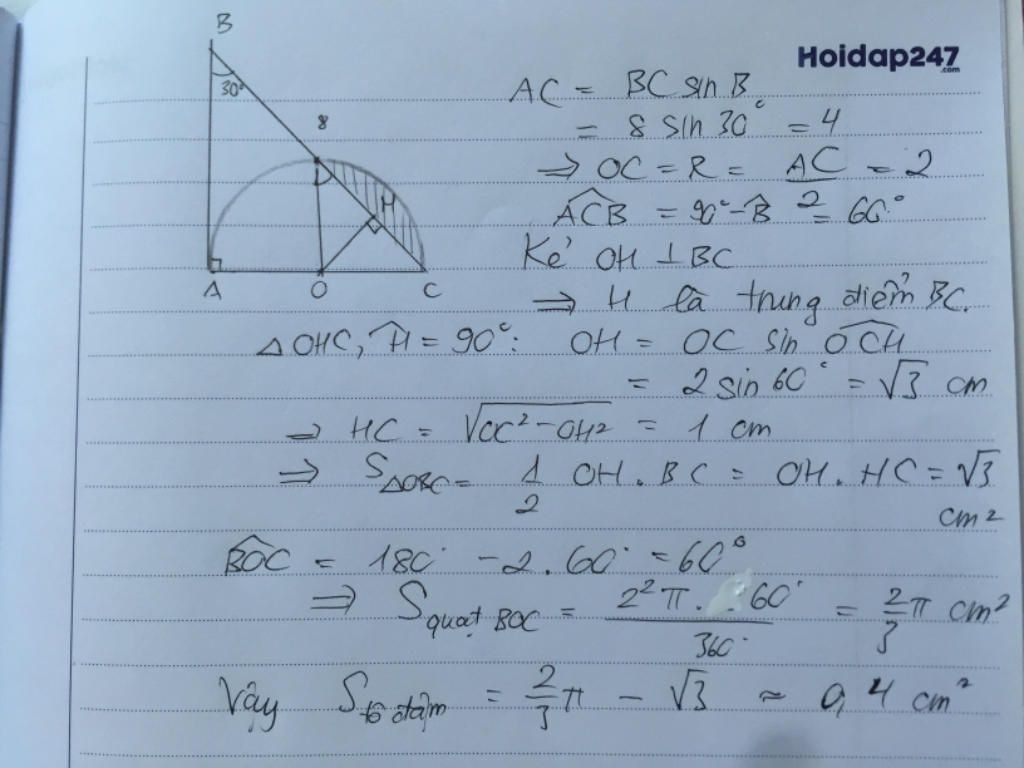 Hoidap247
.com
B
30°
8
H
A O C
AC = BC sin B
= 8 sin 30° = 4
⇒ OC = R = AC/2 = 2
ACB = 90° - B = 60°
Kẻ OH ⊥ BC
⇒ H là trung điểm BC.
△OHC, H = 90°: OH = OC sin OCH
= 2 sin 60° = √3 cm
⇒ HC = √OC² - OH² = 1 cm
⇒ S△OBC = 1/2 OH . BC = OH . HC = √3
cm²
BOC = 180° - 2. 60° = 60°
⇒ S quạt BOC = 2²π . 60°/360° = 2/3 π cm²
Vậy S tô đậm = 2/3 π - √3 ≈ 0,4 cm²